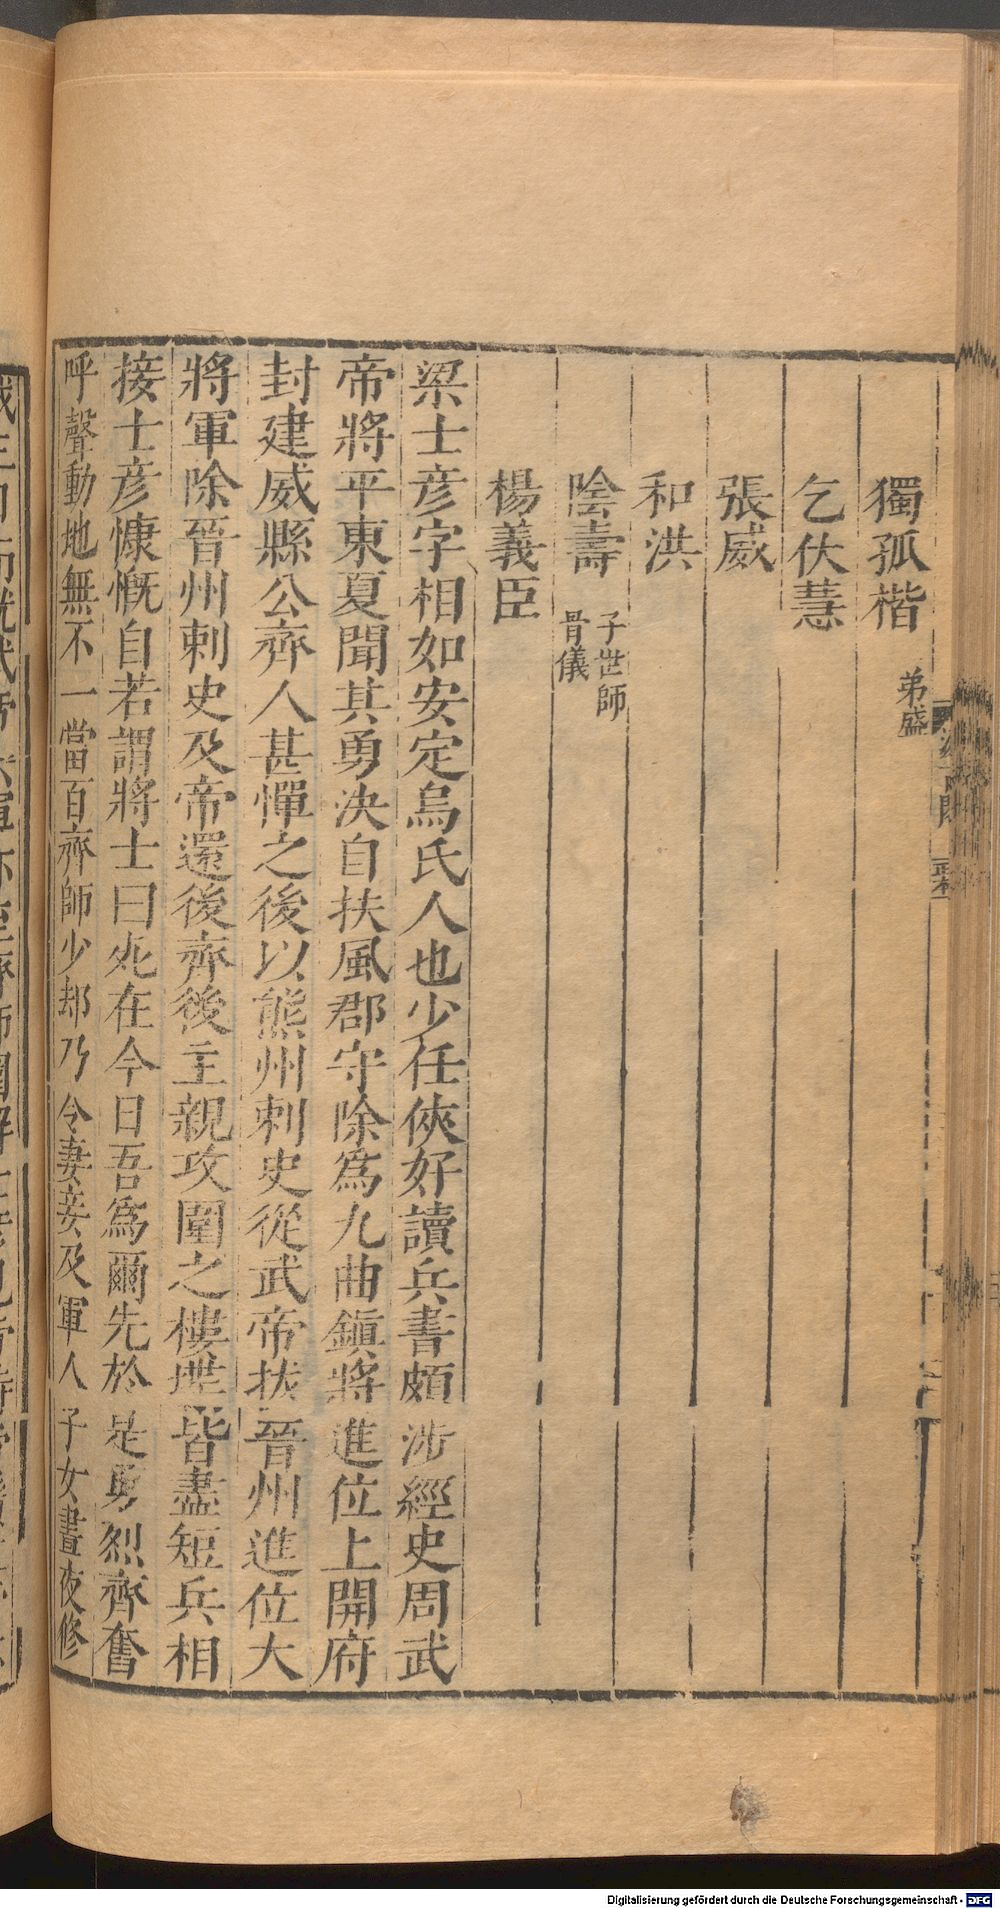 獨孤楷 弟盛
乞伏慧
張威
和洪
陰壽 子世師 骨儀
楊義臣
梁士彦字相如安定烏氏人也少任俠好讀兵書頗涉經史周武
帝將平東夏聞其勇決自扶風郡守除爲九曲鎭將進位上開府
封建威縣公齊人甚憚之後以熊州刺史從武帝拔晉州進位大
將軍除晉州刺史及帝還後齊後主親攻圍之樓堞皆盡短兵相
接士彦慷慨自若謂將士曰死在今日吾爲爾先於是勇烈齊奮
呼聲動地無不一當百齊師少却乃令妻妾及軍人子女晝夜修
Digitalisierung gefördert durch die Deutsche Forschungsgemeinschaft - DFG